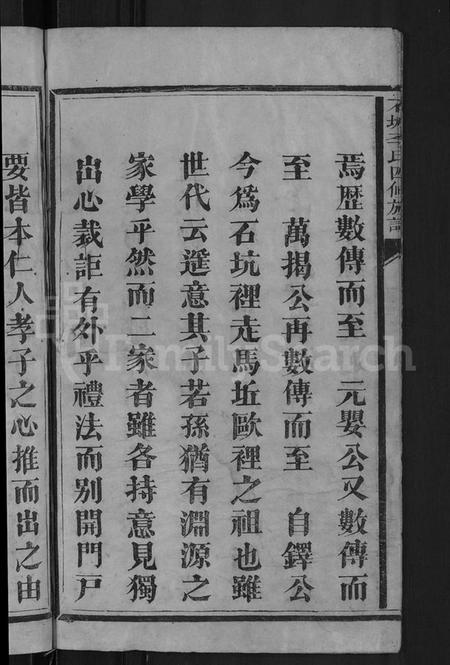 石坑李氏四修族譜
焉歷數傳而至 元嬰公又數傳而
至 萬揭公再數傳而至 自鐸公
今爲石坑裡走馬坵歐裡之祖也雖
世代云遥意其子若孫猶有淵源之
家學乎然而二家者雖各持意見獨
出心裁詎有外乎禮法而别開門戸
要皆本仁人孝子之心推而出之由
FamilySearch